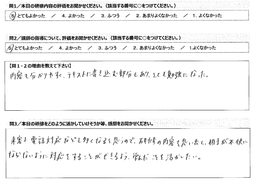 問1／本日の研修内容の評価をお聞かせください。（該当する番号に○をつけてください）
⑤ とてもよかった ／ 4. よかった ／ 3. ふつう ／ 2. あまりよくなかった ／ 1. よくなかった
問2／講師の指導について、評価をお聞かせください。（該当する番号に○をつけてください）
⑤ とてもよかった ／ 4. よかった ／ 3. ふつう ／ 2. あまりよくなかった ／ 1. よくなかった
【問1・2の理由を教えて下さい】
内容も分かりやすく、テキストに書き込む部分もあり、とても勉強になった。
問3／本日の研修をどのように活かしていけそうか等、感想をお聞かせください。
来客や電話対応など多くなると思うので、研修の内容を思い出して、相手が不快に
ならないように対応をすることができるよう、学んだ事を活かしたい。